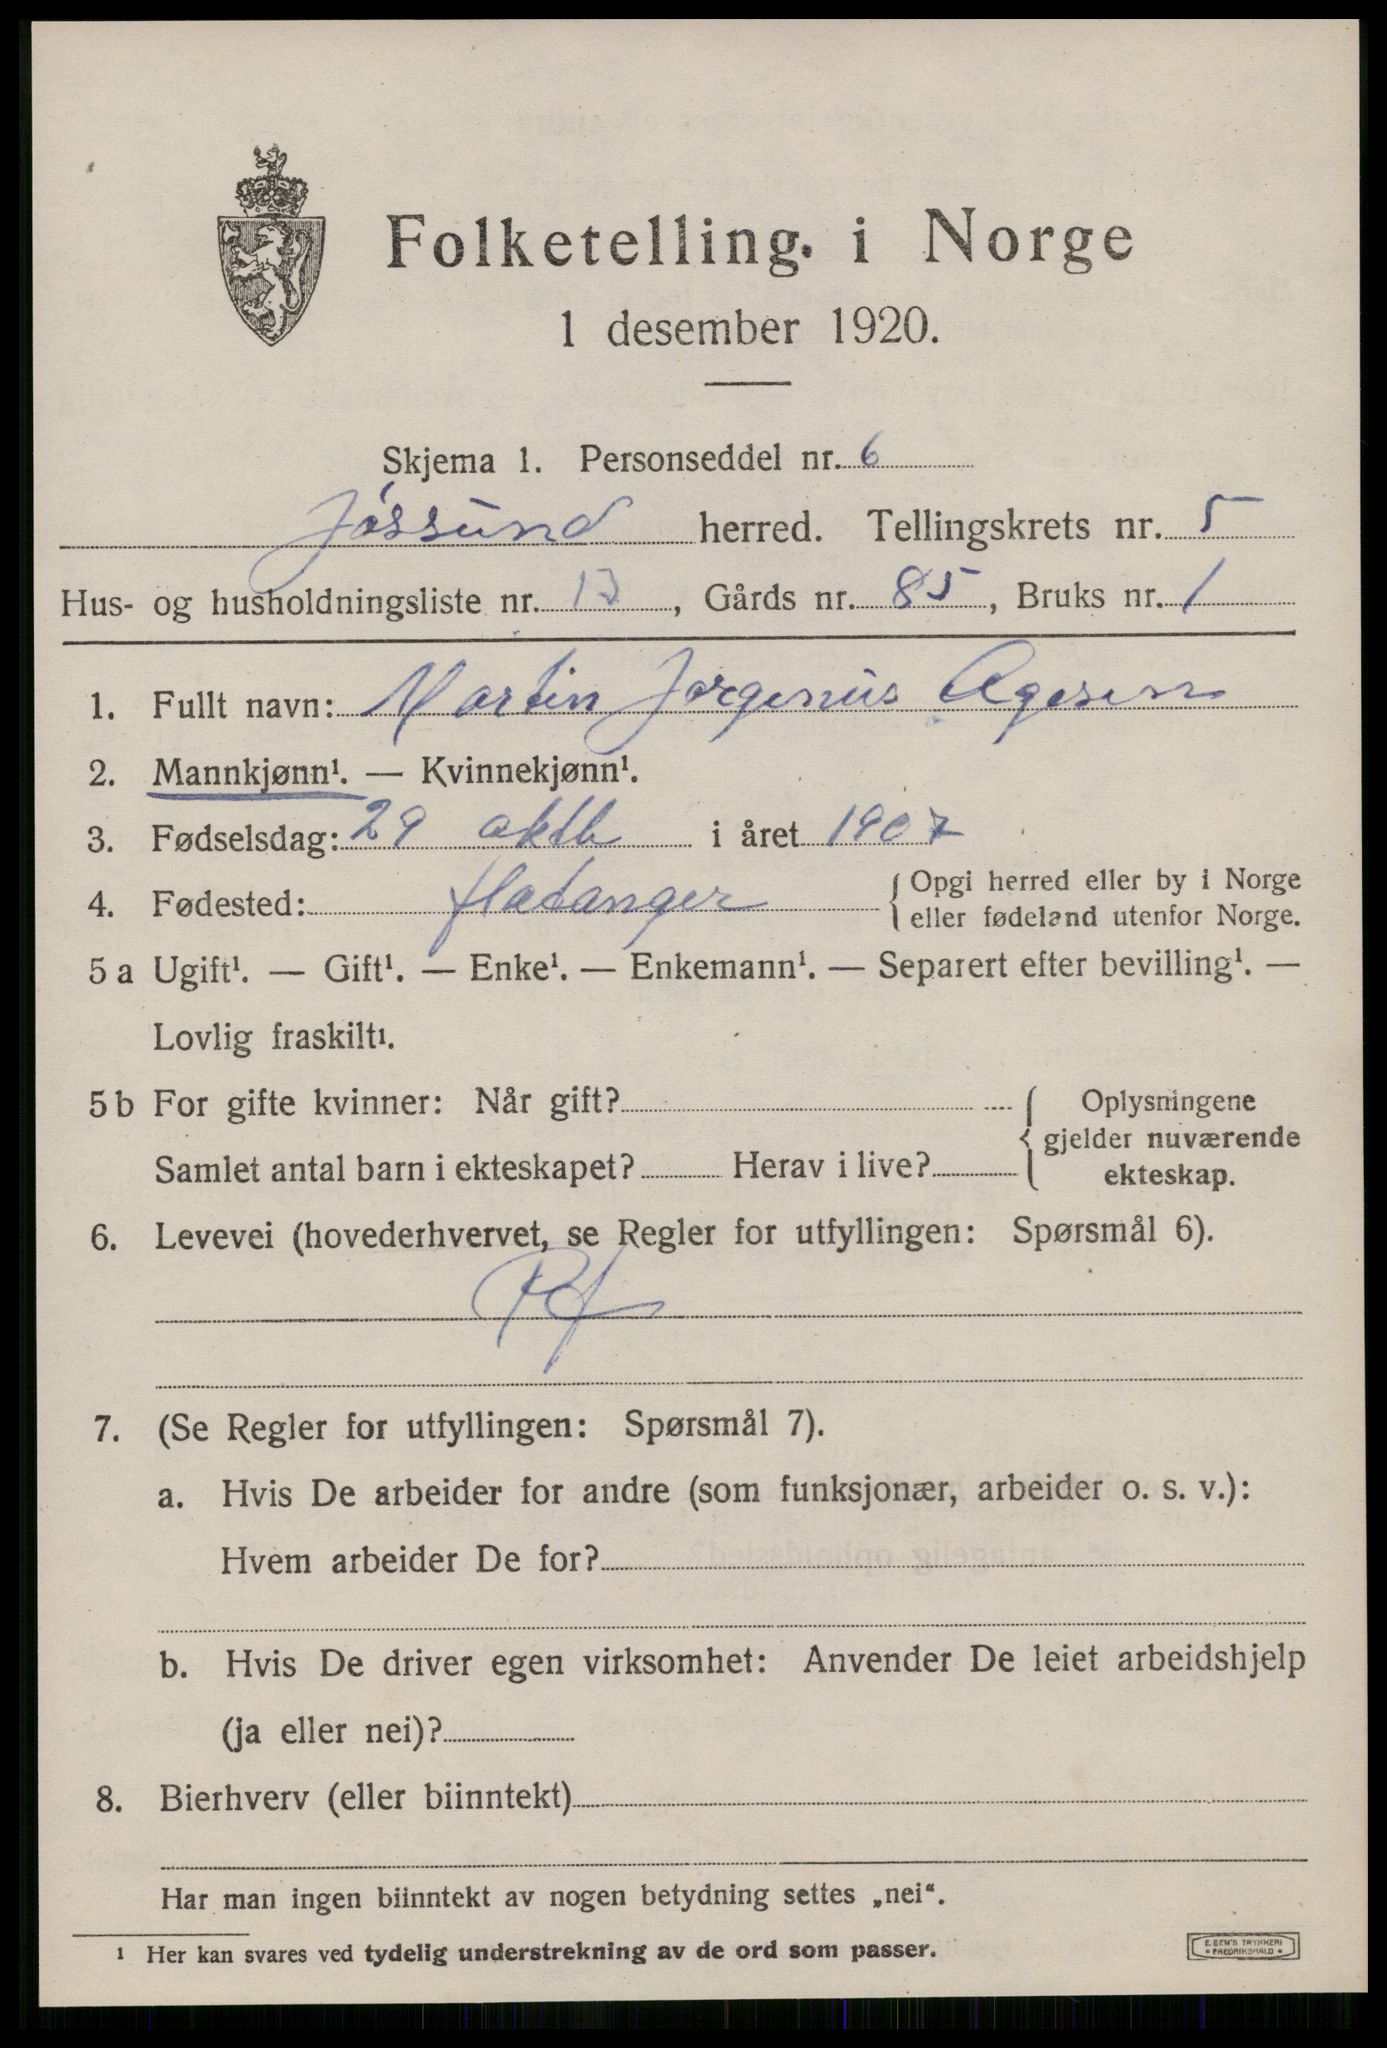 Folketelling i Norge
1 desember 1920.
Skjema 1. Personseddel nr. 6
Jössund herred. Tellingskrets nr. 5
Hus- og husholdningsliste nr. 13, Gårds nr. 85, Bruks nr. 1
1. Fullt navn: Martin Jorgenius Agesen
2. Mannkjønn¹. — Kvinnekjønn¹.
3. Fødselsdag: 29 oktb i året 1907
4. Fødested: flatanger { Opgi herred eller by i Norge
eller fødeland utenfor Norge.
5 a Ugift¹. — Gift¹. — Enke¹. — Enkemann¹. — Separert efter bevilling¹. —
Lovlig fraskilt¹.
5 b For gifte kvinner: Når gift? { Oplysningene
gjelder nuværende
Samlet antal barn i ekteskapet? Herav i live? ekteskap.
6. Levevei (hovederhvervet, se Regler for utfyllingen: Spørsmål 6).
7. (Se Regler for utfyllingen: Spørsmål 7).
a. Hvis De arbeider for andre (som funksjonær, arbeider o. s. v.):
Hvem arbeider De for?
b. Hvis De driver egen virksomhet: Anvender De leiet arbeidshjelp
(ja eller nei)?
8. Bierhverv (eller biinntekt)
Har man ingen biinntekt av nogen betydning settes „nei“.
¹ Her kan svares ved tydelig understrekning av de ord som passer.
E. SEM'S TRYKKERI
• FREDRIKSHALD •